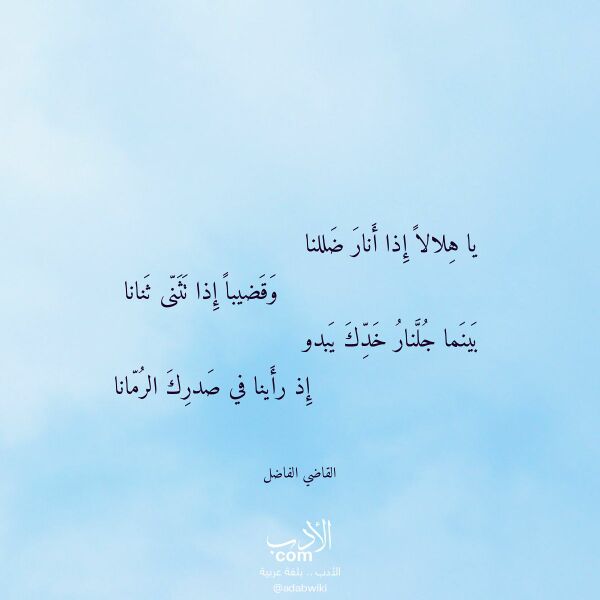 يا هِلالاً إِذا أَنارَ ضَللنا
وَقَضيباً إِذا تَثَنّى ثَنانا
بَينَما جُلَّنارُ خَدِّكَ يَبدو
إِذ رأَينا في صَدرِكَ الرُمّانا
القاضي الفاضل
الأدب
com
الأدب .. بلغة عربية
@adabwiki